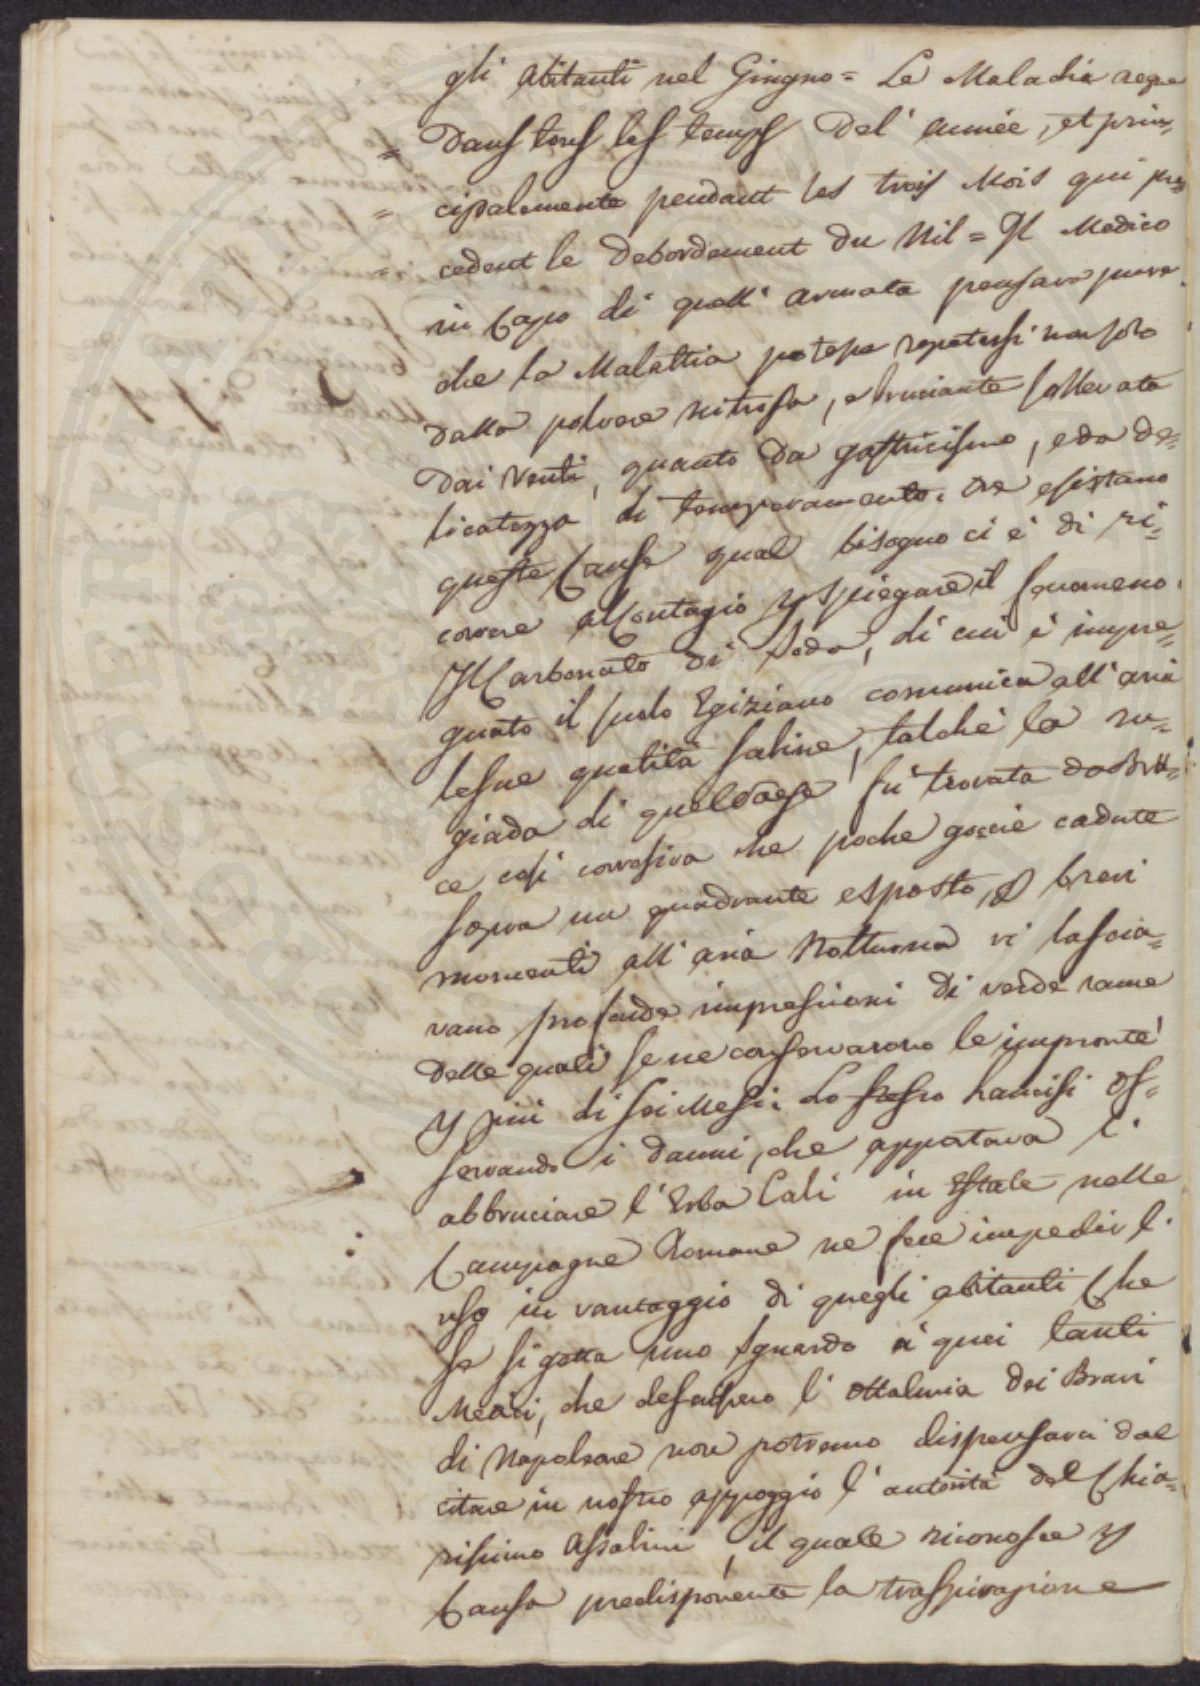 gli abitanti nel Giugno = La Maladia regne
= Dans tous les temps Del' année, et prin=
= cipalemente pendant les trois Mois qui pre=
= cedent le Debordement Du Nil = Il Medico
in Capo di quell' armata pensava pure
che la Malattia potesse repetersi non solo
dalla polvere nitrosa, e bruciante sollevata
Dai Venti, quanto Da gastricismo, e da de=
licatezza di temperamento. Ora esistano
queste Cause qual bisogno ci è di ri=
correre al Contagio p spiegare il fenomeno.
Il Carbonato di Soda, di cui è impre=
gnato il suolo Egiziano comunica all' aria
le sue qualità saline, talchè la ru=
giada di quel Paese fu trovata da Bru=
ce così corrosiva che poche goccie cadute
sopra un quadrante esposto p brevi
momenti all' aria Notturna vi lascia=
vano profonde impressioni di verde rame
delle quali se ne conservarono le impronte
p più di sei Mesi. Lo stesso Lancisi os=
servando i danni, che apportava l'
abbruciare l' Erba Cali in Estate nelle
Campagne Romane ne fece impedir l'
uso in vantaggio di quegli abitanti Che
se si getta uno sguardo a quei tanti
Medici, che descrissero l' ottalmia dei Bravi
di Napoleone non potremo dispensarci dal
citare in nostro appoggio l' autorità del Chia=
rissimo Assalini, il quale riconosce p
Causa predisponente la traspirazione